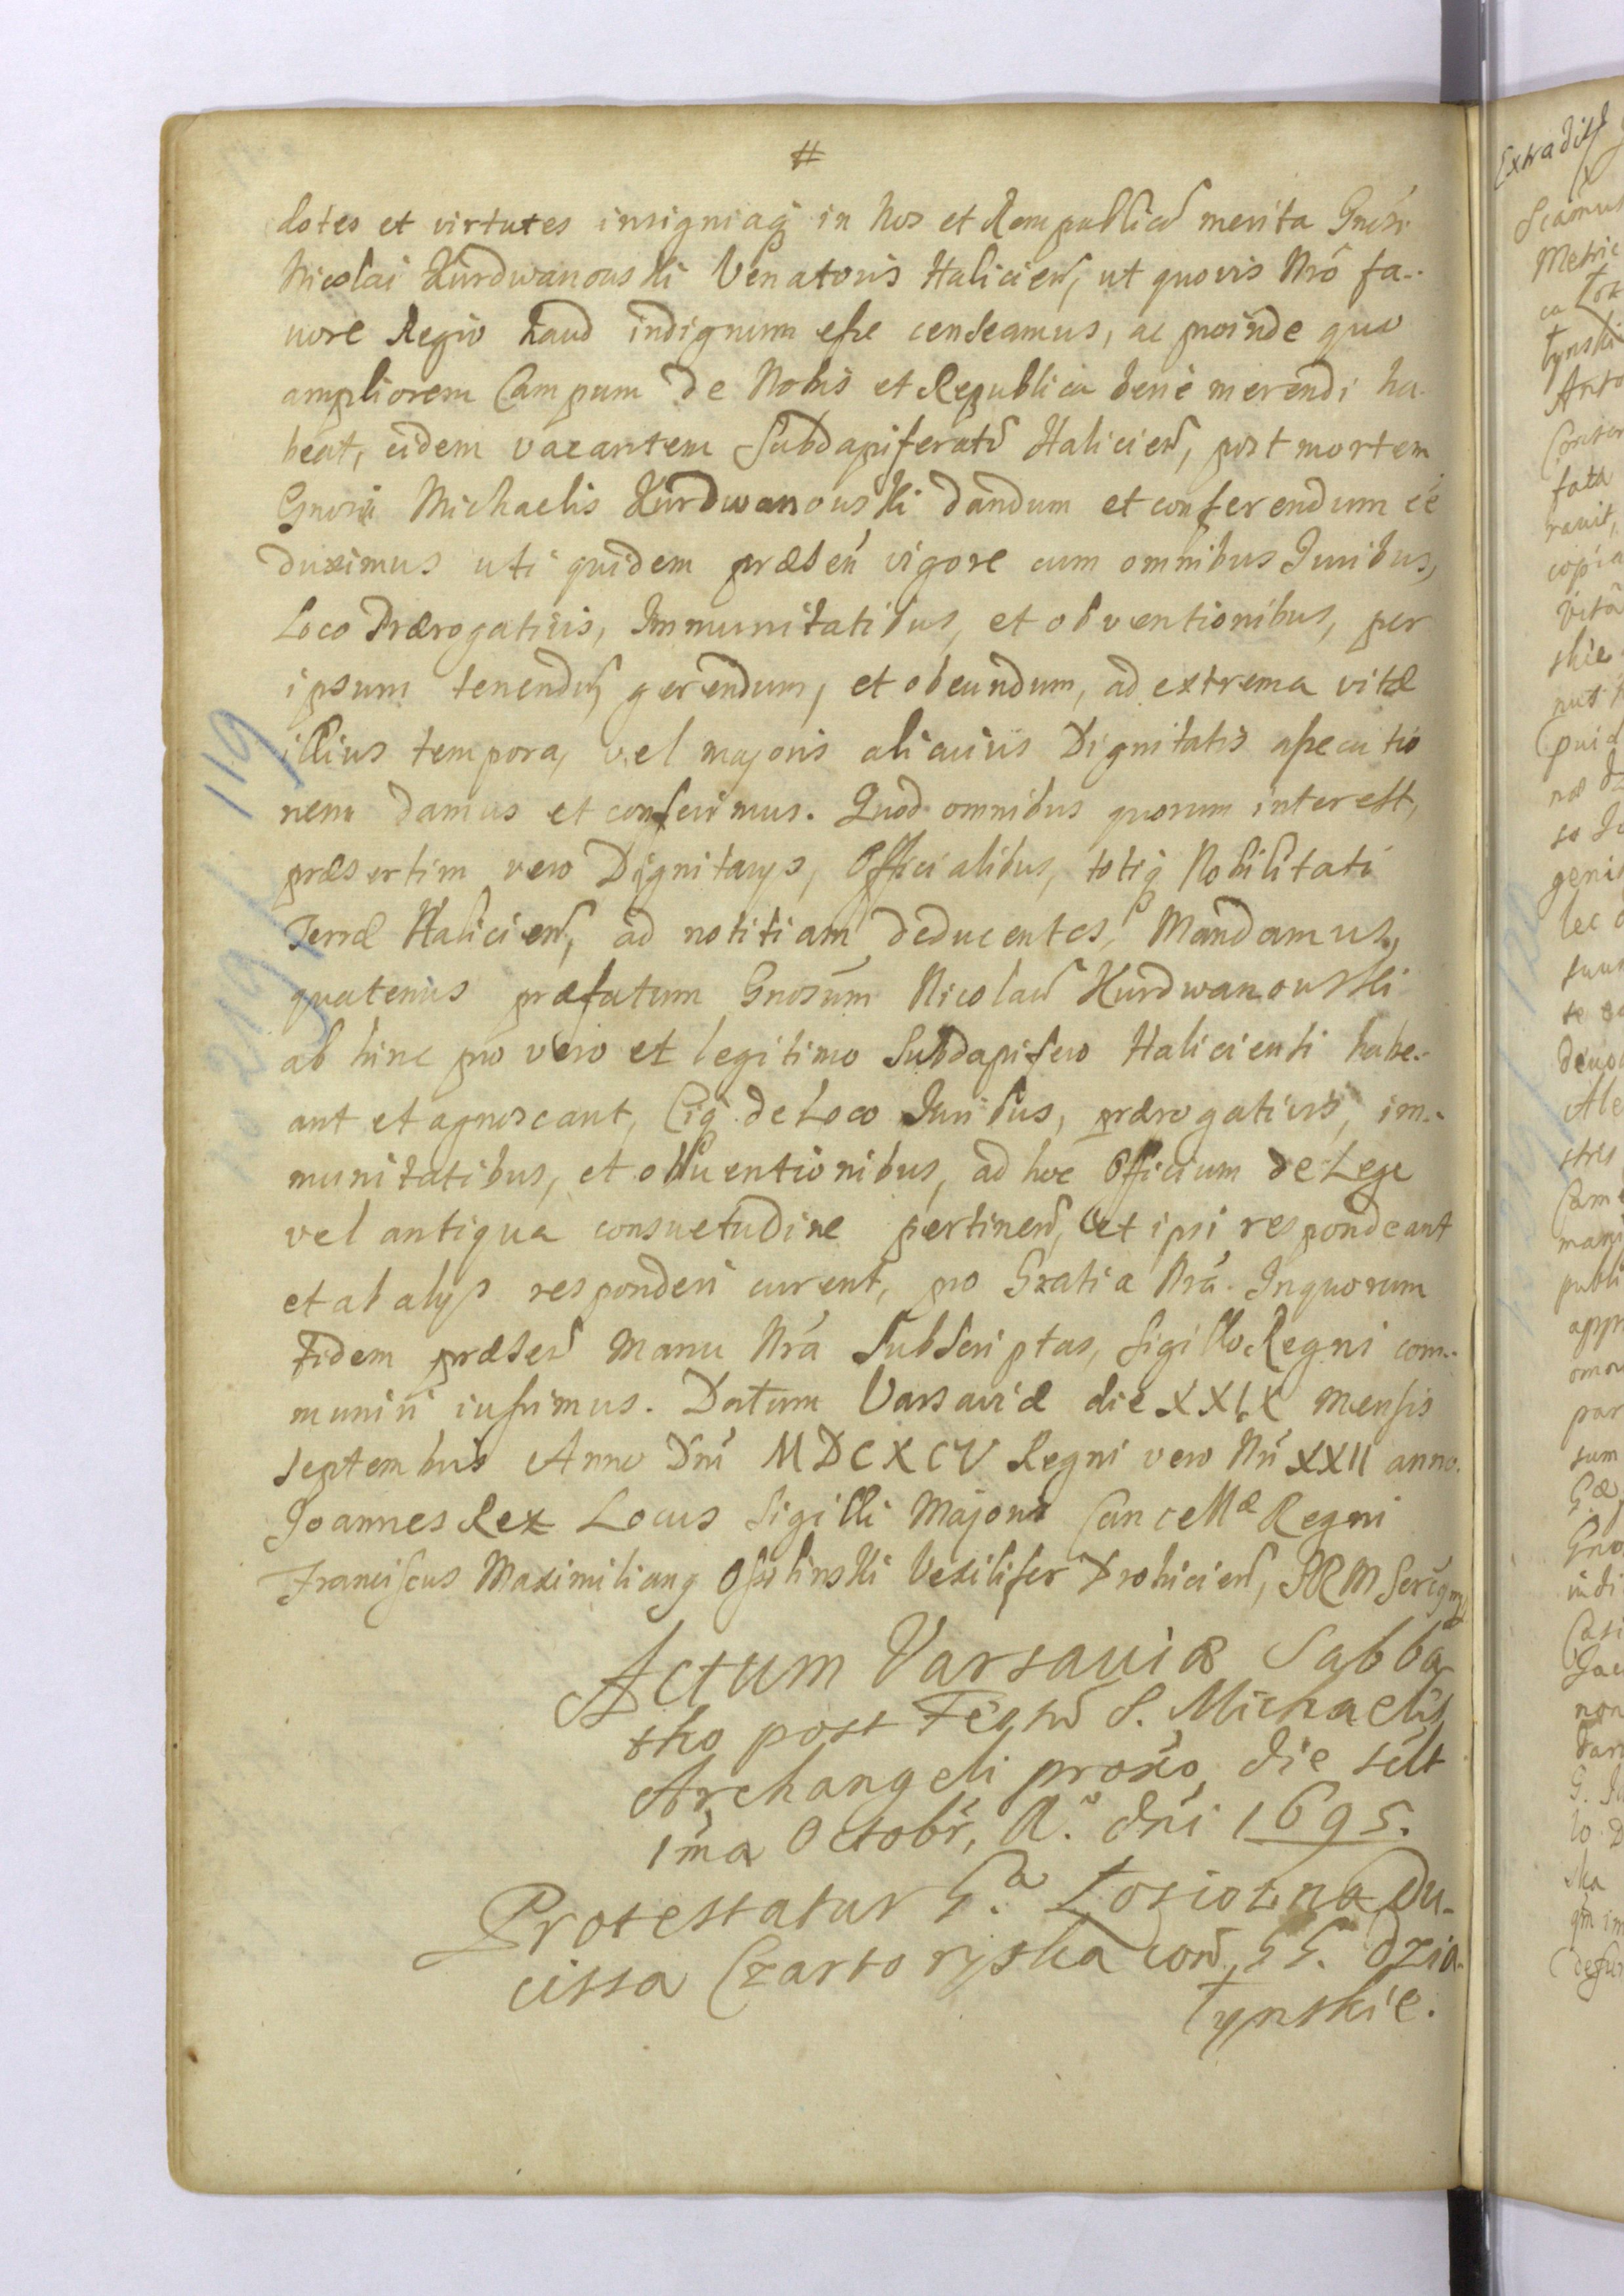 #
dotes et virtutes insigniaq in Nos et Rempublicã merita Gnõsi
Nicolai Kurdwanouski Venatoris Halicien, ut quovis Nrõ fa-
uore Regio haud indignum esse censeamus, ac proinde quo
ampliorem Campum de Nobis et Republica bene merendi ha-
beat, eidem vacantem Subdapiferatũ Halicien, post mortem
Gnosi Michaelis Kurdwanouski dandum et conferendum ẽe
duximus uti quidem præsen vigore cum omnibus Juribus,
Loco Prærogativis, Immunitatibus, et obventionibus, per
ipsum tenendũ gerendum, et obeundum, ad extrema vitæ
illius tempora, vel majoris alicuius Dignitatis assecutio
nem damus et conferimus. Quod omnibus quorum interest,
præsertim vero Dignitarys, Officialibus, totiq Nobilitati
Terræ Halicien, ad notitiam deducentes, Mandamus,
quatenus præfatum Gnosum Nicolaũ Kurdwanouski
ab hinc pro vero et legitimo Subdapifero Haliciensi habe-
ant et agnoscant, Eiq de Loco Juribus, prærogativis, im-
munitatibus, et obuentionibus, ad hoc Officium de Lege
vel antiqua consuetudine pertinen, et ipsi respondeant
et ab alys responderi curent, pro Gratia Nrã. In quorum
Fidem præsen manu Nrã Subscriptas, Sigillo Regni com-
muniri iussimus. Datum Varsaviæ die XXIX Mensis
Septembris Anno Dnĩ MDCXCV Regni vero Nrĩ XXII anno.
Joannes Rex Locus Sigilli Majoris Cancellæ Regni
Franciscus Maximilianq Ossolinski Vexilifer Drohicien, SRM
Actum Varsauiæ Sabba
tho post Festũ S. Michaelis
Archangeli proxõ die scilt
1ma Octobr, A.º dni 1695.
Protestatur G.ª Łosiowna Du-
cissa Czartoryska con, GG. Dzia-
łynskie.
119